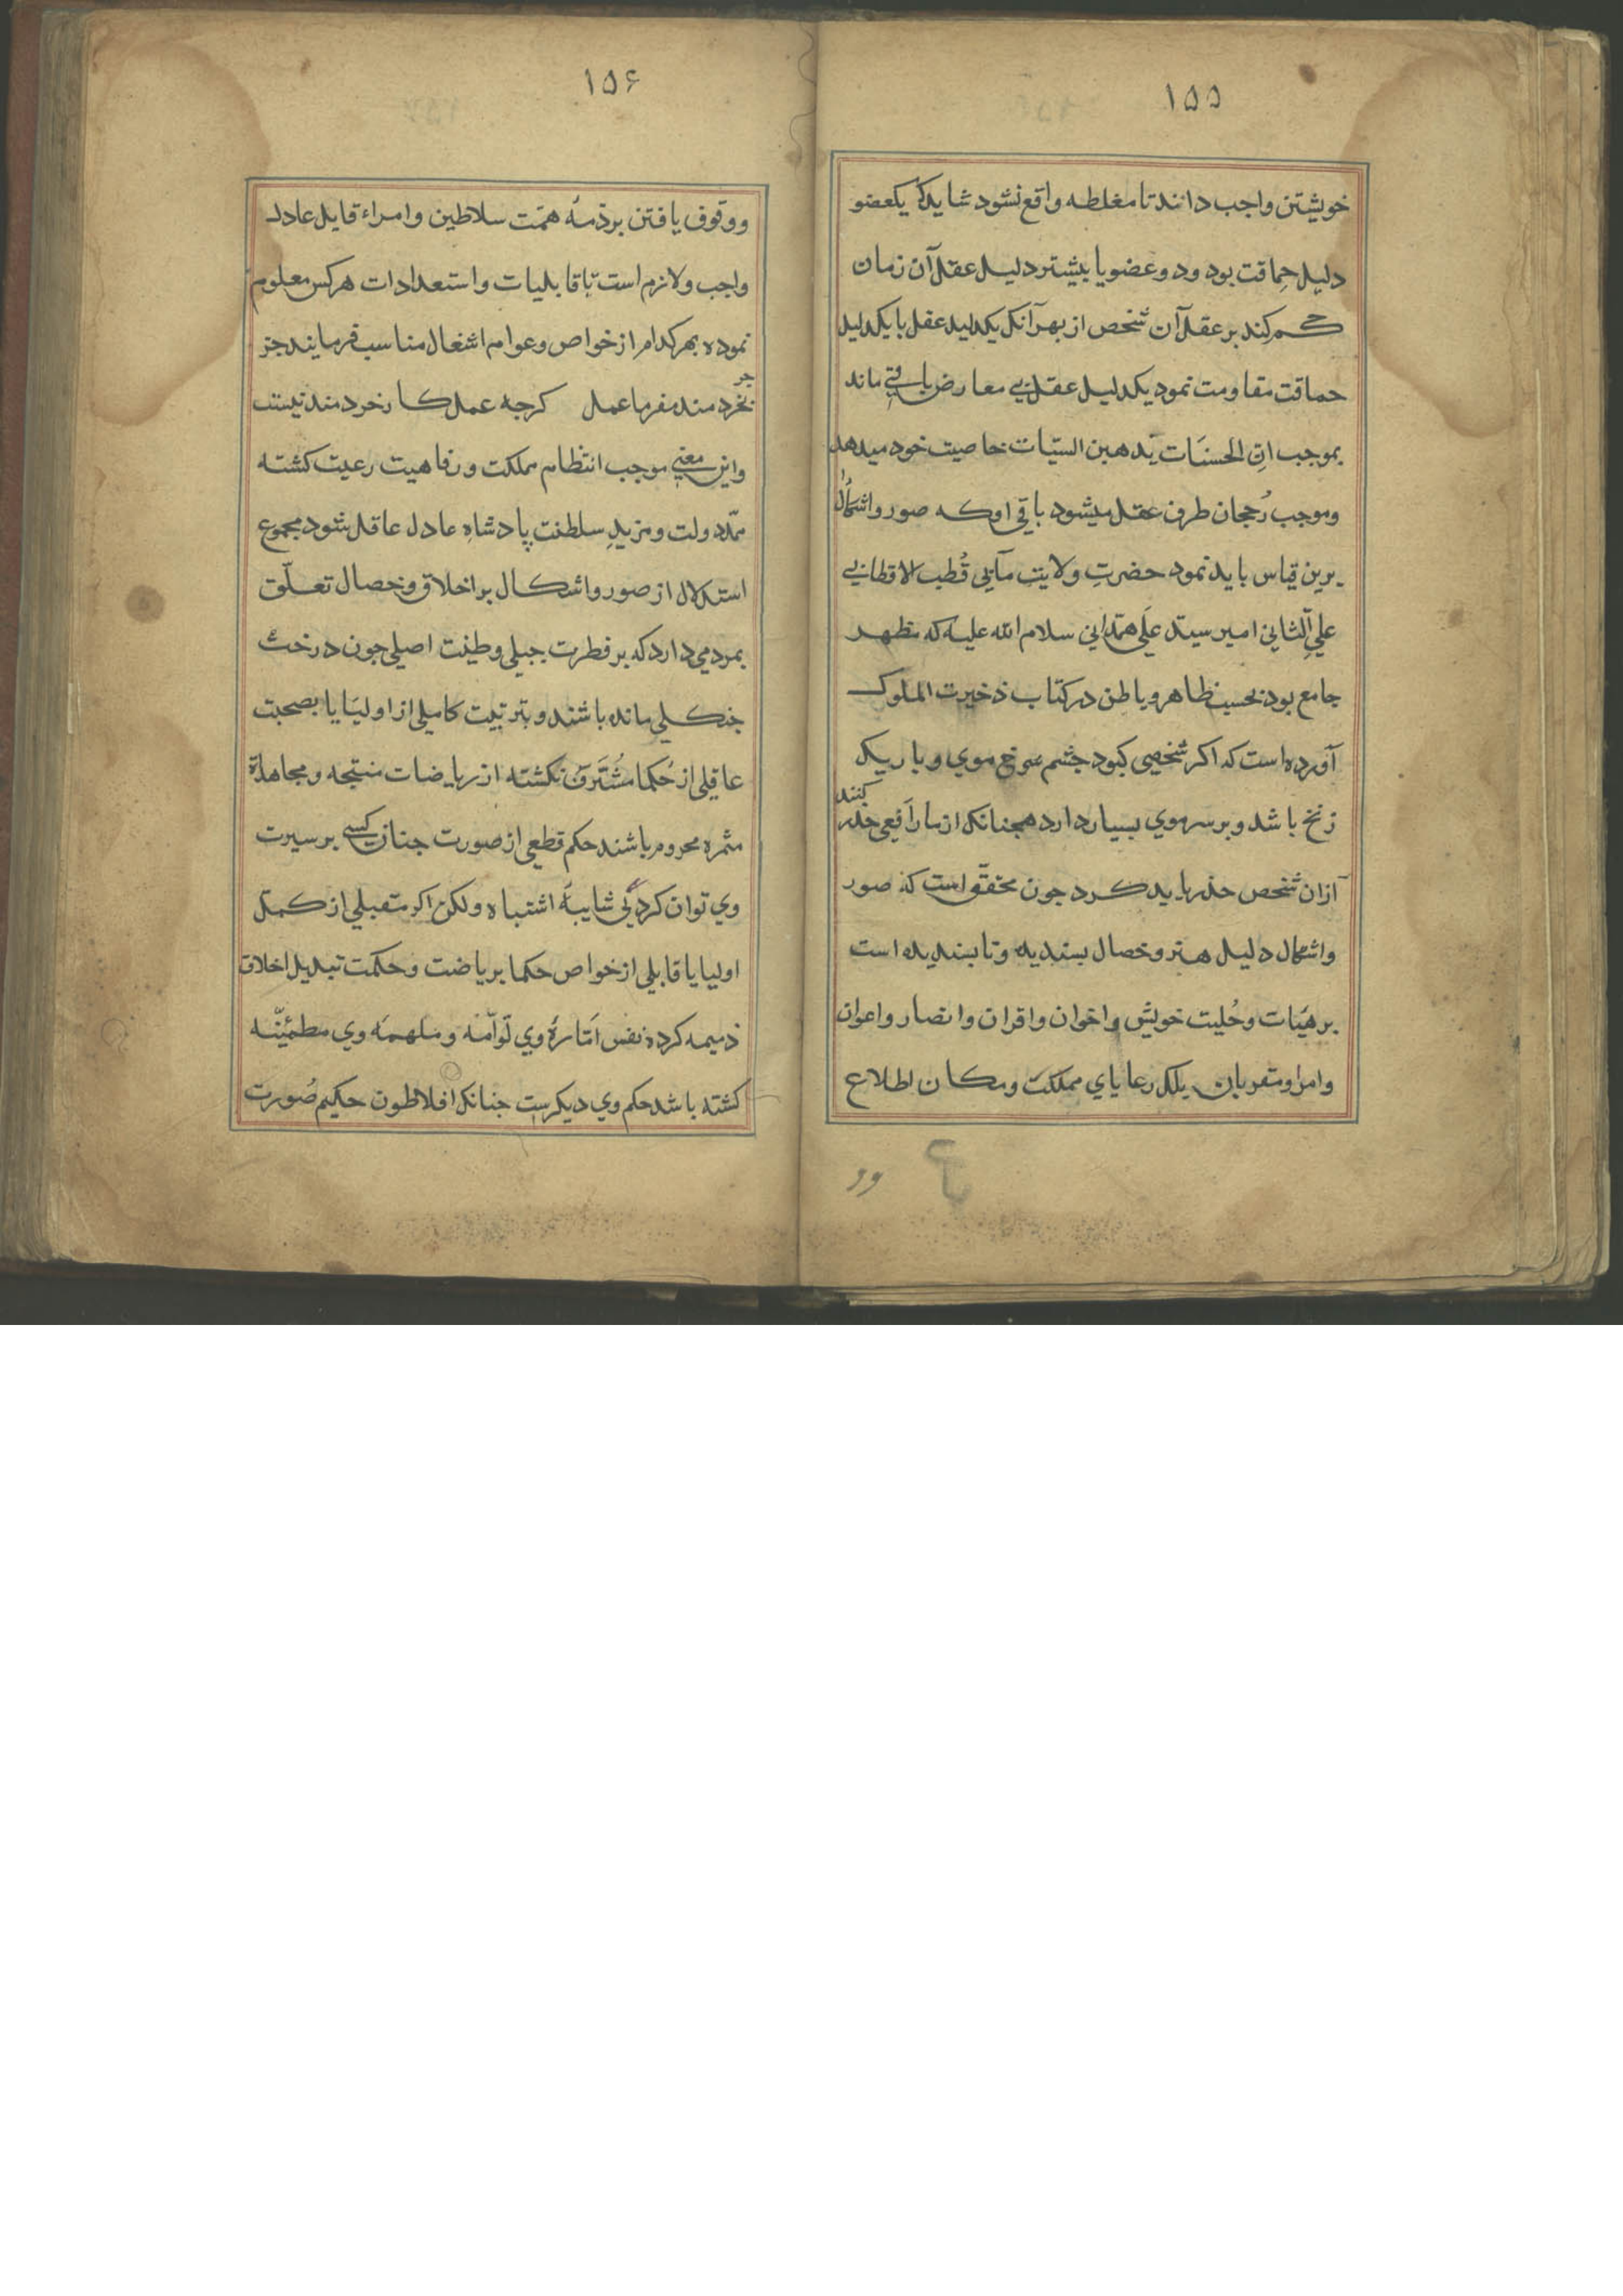 ۱۵۵
خویشتن واجب دانند تا مغلطه واقع نشود شاید که یکعضو
دلیل حماقت بود ودو عضو یا بیشتر دلیل عقل آن زمان
حکم کند بر عقل آن شخص از بهر آنکه یکدلیل عقل با یکدلیل
حماقت مقاومت نمود یکدلیل عقل بی معارض باقی ماند
بموجب ان الحسنات یذهبن السیات خاصیت خود میدهد
وموجب رُجحان طرف عقل میشود باقی اوکه صور واشکال را
برین قیاس باید نمود حضرتِ ولایت مآبی قُطب الاقطابی
علیِ الثانی امیر سید علی همدانی سلام الله علیه که مظهر
جامع بود بحسب ظاهر وباطن در کتاب ذخیرت الملوک
آورده است که اکر شخصی کبود چشم سرخ موی وباریک
زنخ باشد وبر سر موی بسیار دارد همچنانکه از مار افعی حذر کنند
ازان شخص حذر باید کرد جون محقق است که صور
واشکال دلیل هنر وخصال بسندیده ونابسندیده است
بر هیات وحُلیت خویش واخوان واقران وانصار واعوان
وامرا ومقربان بلکه رعایای مملکت ومکان اطلاع
وو
۱۵۶
ووقوف یافتن بر ذمهٔ همّت سلاطین وامراء قابل عادل
واجب ولازم است تا قابلیات واستعدادات هرکس معلوم
نموده بهرکدام از خواص وعوام اشغال مناسب فرمایند جز
جز
بخردمند مفرما عمل کرجه عمل کار خردمند نیست
واین معنی موجب انتظام مملکت ورفاهیت رعیت کشته
ممّد دولت ومزیدِ سلطنت پادشاهِ عادل عاقل شود مجموع
استدلال از صور واشکال بر اخلاق وخصال تعلّق
بمردمی دارد که بر فطرت جبلی وطینت اصلی جون درخت
جنکلی مانده باشند وبتربیت کاملی از اولیا یا بصحبت
عاقلی از حُکما مُشرف نکشته از ریاضات منتجه ومجاهدة
مثمره محروم باشند حکم قطعی از صورت جنان کسی بر سیرت
وی توان کرد بی شایبهٔ اشتباه ولکن اکر مقبلی از کمل
اولیا یا قابلی از خواص حکما بریاضت وحکمت تبدیل اخلاق
ذمیمه کرده نفس امّارهٔ وی لوّامه وملهمه وی مطمئنّه
کشته باشد حکم وی دیکرست جنانکه افلاطون حکیم صُورت